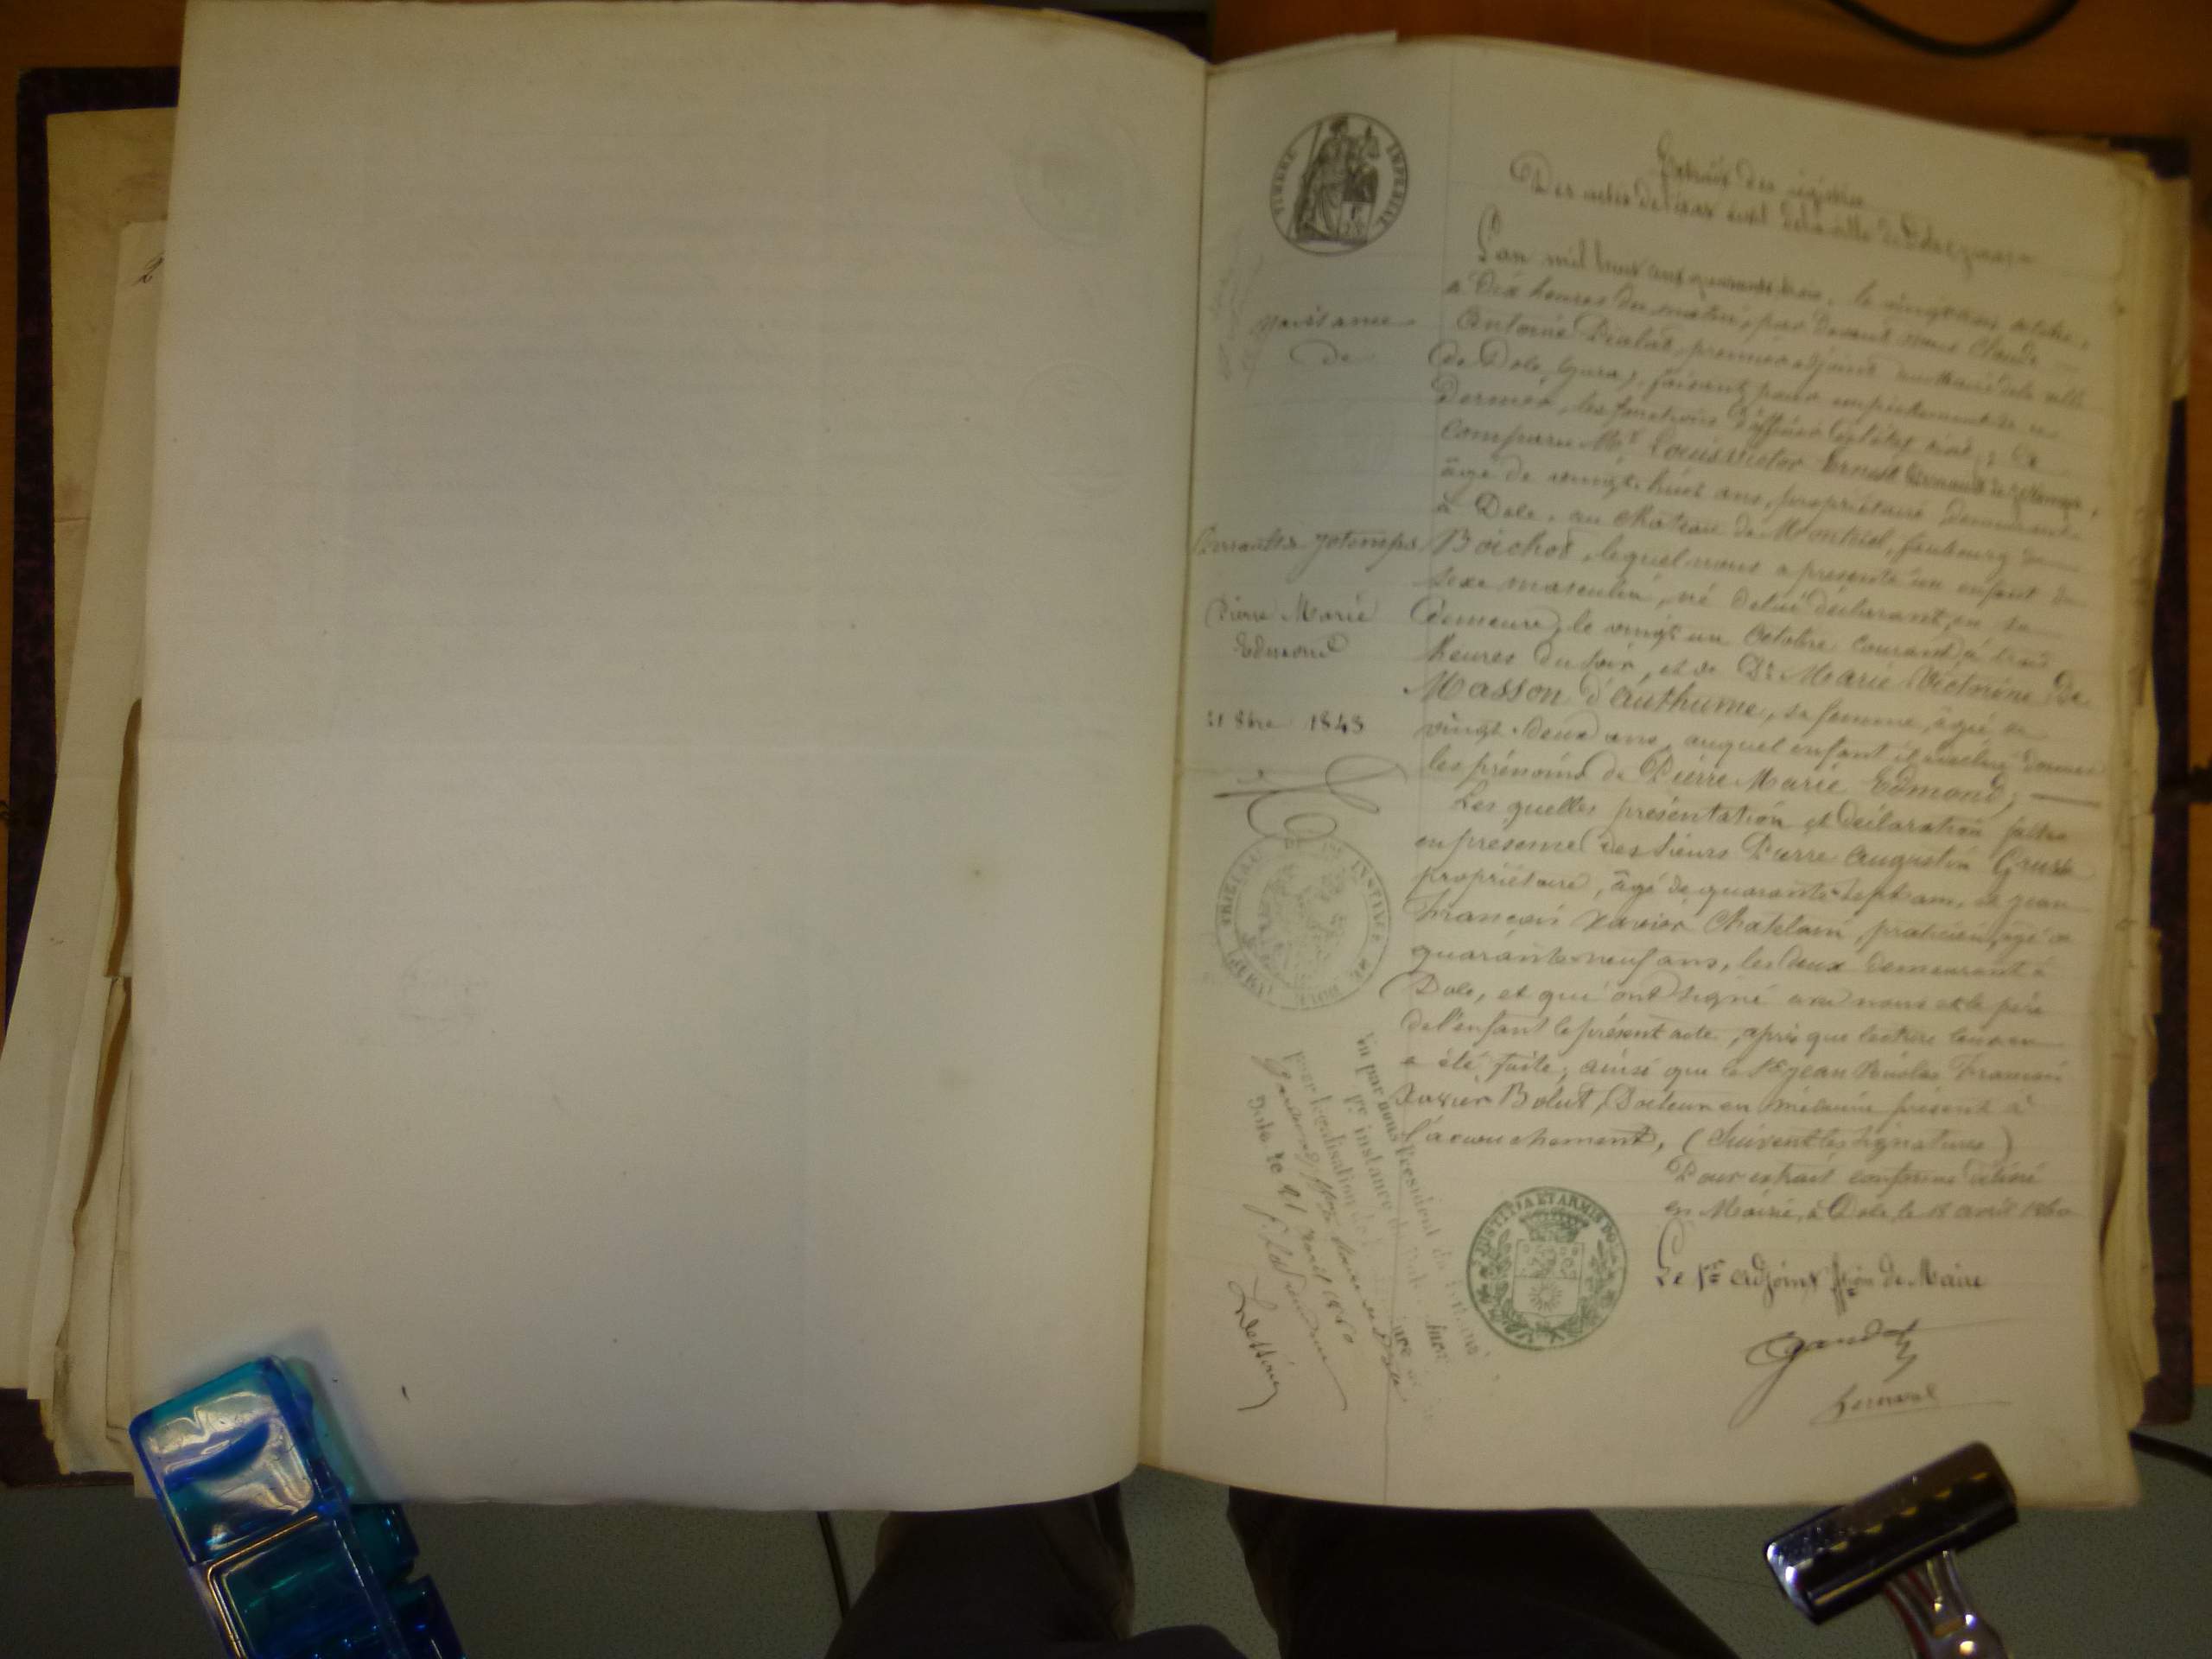 TIMBRE IMPERIAL
Extrait des registres
Des actes de l'état civil de la ville de Dole (Jura)
L'an mil huit cent quarante trois, le vingt trois octobre,
à Dix heures du matin, par devant nous Claude
Antoine premier adjoint au maire de la ville
de Dole (Jura), faisant pour empêchement de ce
dernier, les fonctions d'officier de l'état civil, a
comparu Mr. Louis Victor Ernest
âgé de vingt huit ans, propriétaire demeurant
à Dole, au château de Montciel, faubourg de
Boichot, lequel nous a présenté un enfant du
sexe masculin, né de lui déclarant, en sa
demeure, le vingt un Octobre courant, à
heures du soir, et de De. Marie Victorine De
Masson d'authume, sa femme, âgée de
vingt-deux ans, auquel enfant il a déclaré donner
les prénoms de Pierre Marie Edmond;
Les quelles présentation et déclaration faites
en présence des sieurs Pierre Augustin
propriétaire, âgé de quarante-sept ans, et jean
François Xavier Chatelain, praticien, âgé de
quarante-neuf ans, les deux demeurant à
Dole, et qui ont signé avec nous et le père
de l'enfant le présent acte, après que lecture leur en
a été faite, ainsi que le Sr. jean Nicolas François
Xavier Bolut, Docteur en médecine présent à
l'accouchement, (Suivent les signatures)
Pour extrait conforme délivré
en Mairie, à Dole, le 18 avril 1860
Le 1er adjoint ffon de Maire
Naissance
de
Pierre Marie
Edmond
21 8bre 1843
TRIBUNAL DE 1re INSTANCE DE DOLE (JURA)
Vu par nous Président du Tribunal
1re instance de
pour légalisation de
Dole le 21 avril 1860
JUSTITIA ET ARMIS DOLA